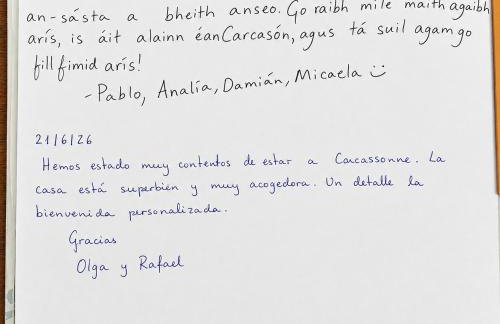 an-sásta a bheith anseo. Go raibh míle maith agaibh
arís, is áit alainn éanCarcasón, agus tá suil agam go
fill fimid arís!
- Pablo, Analía, Damián, Micaela
21/6/26
Hemos estado muy contentos de estar a Carcassonne. La
casa está superbien y muy acogedora. Un detalle la
bienvenida personalizada.
Gracias
Olga y Rafael